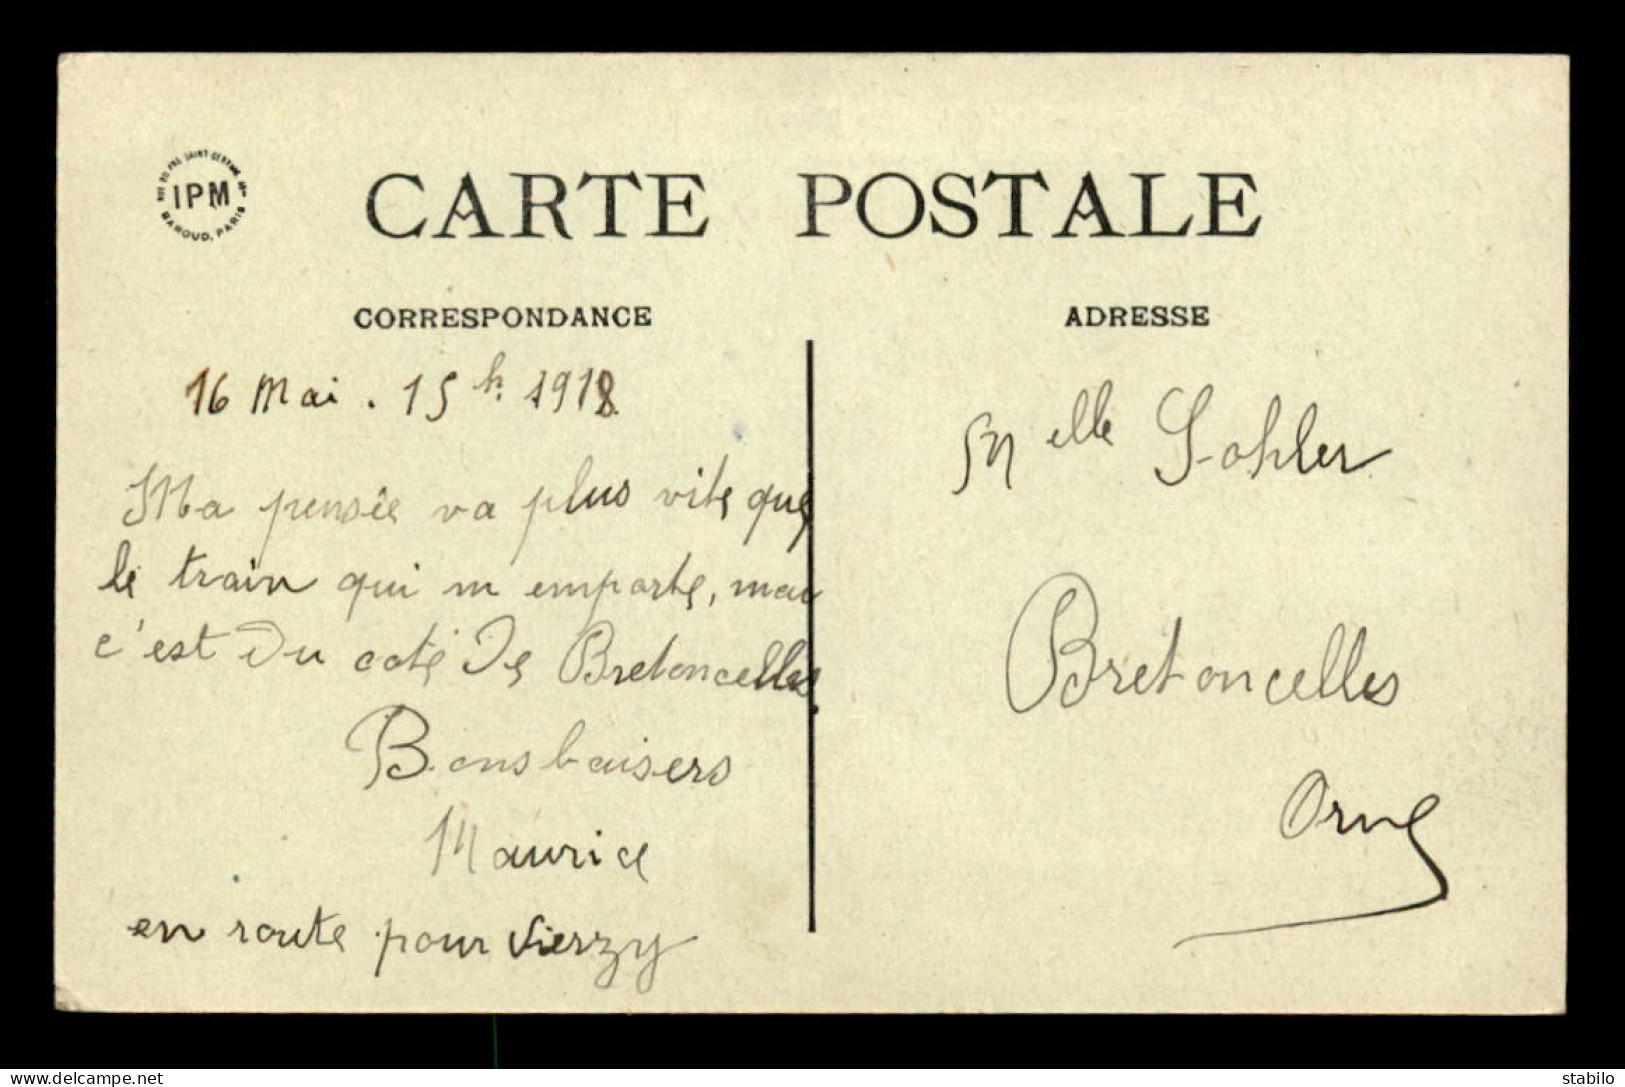 IPM
BAROUD, PARIS
CARTE POSTALE
CORRESPONDANCE
ADRESSE
16 Mai . 15 h. 1918.
Ma pensée va plus vite que
le train qui m emporte, mais
c'est du coté de Bretoncelles.
Bons baisers
Maurice
en route pour Vierzy
Melle Sohler
Bretoncelles
Orne
delcampe.net
stabilo